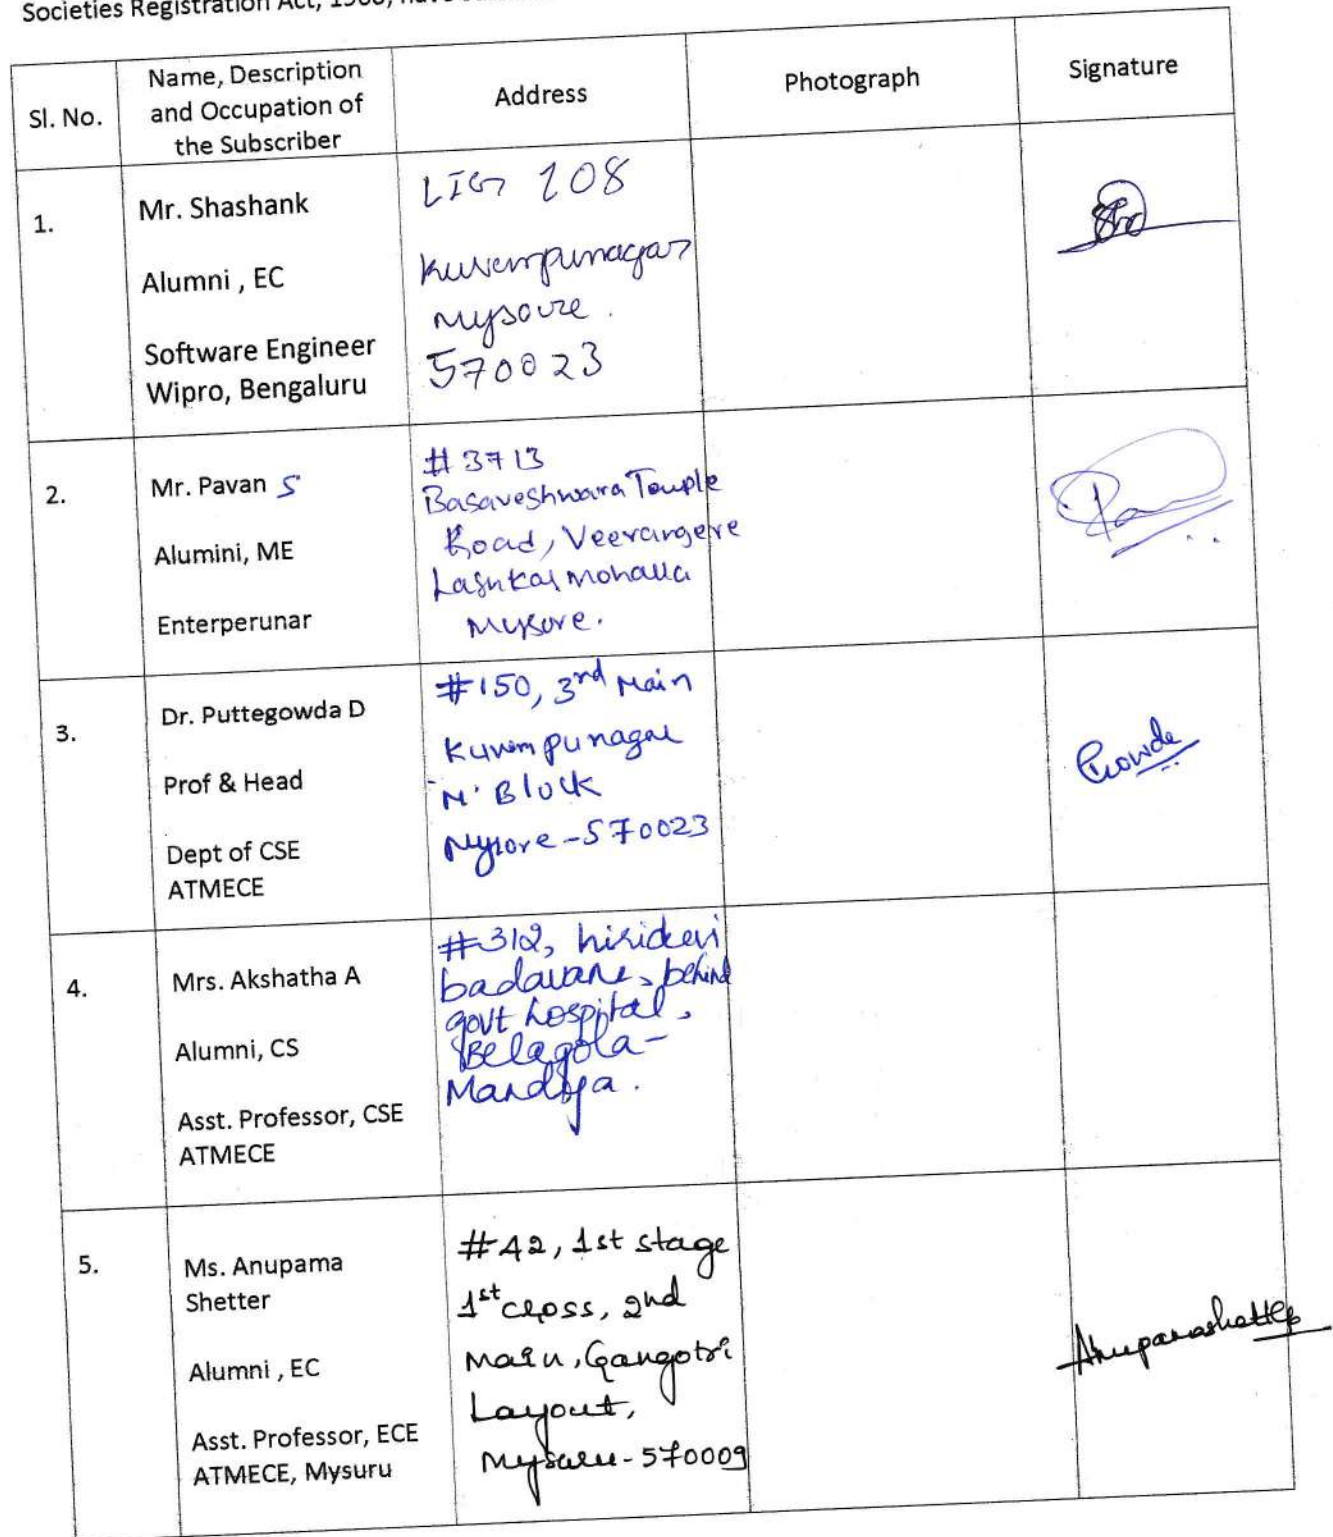 Societies Registration Act, 1960, have
Sl. No.
Name, Description
and Occupation of
the Subscriber
Address
Photograph
Signature
1.
Mr. Shashank
Alumni , EC
Software Engineer
Wipro, Bengaluru
LIG 108
Kuvempunagar
Mysoure.
570023
2.
Mr. Pavan S
Alumini, ME
Enterperunar
#3713
Basaveshwara Temple
Road, Veerangere
Lashkar Mohalla
Mysore.
3.
Dr. Puttegowda D
Prof & Head
Dept of CSE
ATMECE
#150, 3rd Main
Kuvempunagar
'M' Block
Mysore-570023
4.
Mrs. Akshatha A
Alumni, CS
Asst. Professor, CSE
ATMECE
#312, hiridevi
badavane, behind
govt hospital,
Belagola-
Mandya.
5.
Ms. Anupama
Shetter
Alumni , EC
Asst. Professor, ECE
ATMECE, Mysuru
#42, 1st stage
1st cross, 2nd
Main, Gangotri
Layout,
Mysuru-570009
Anupamashetter